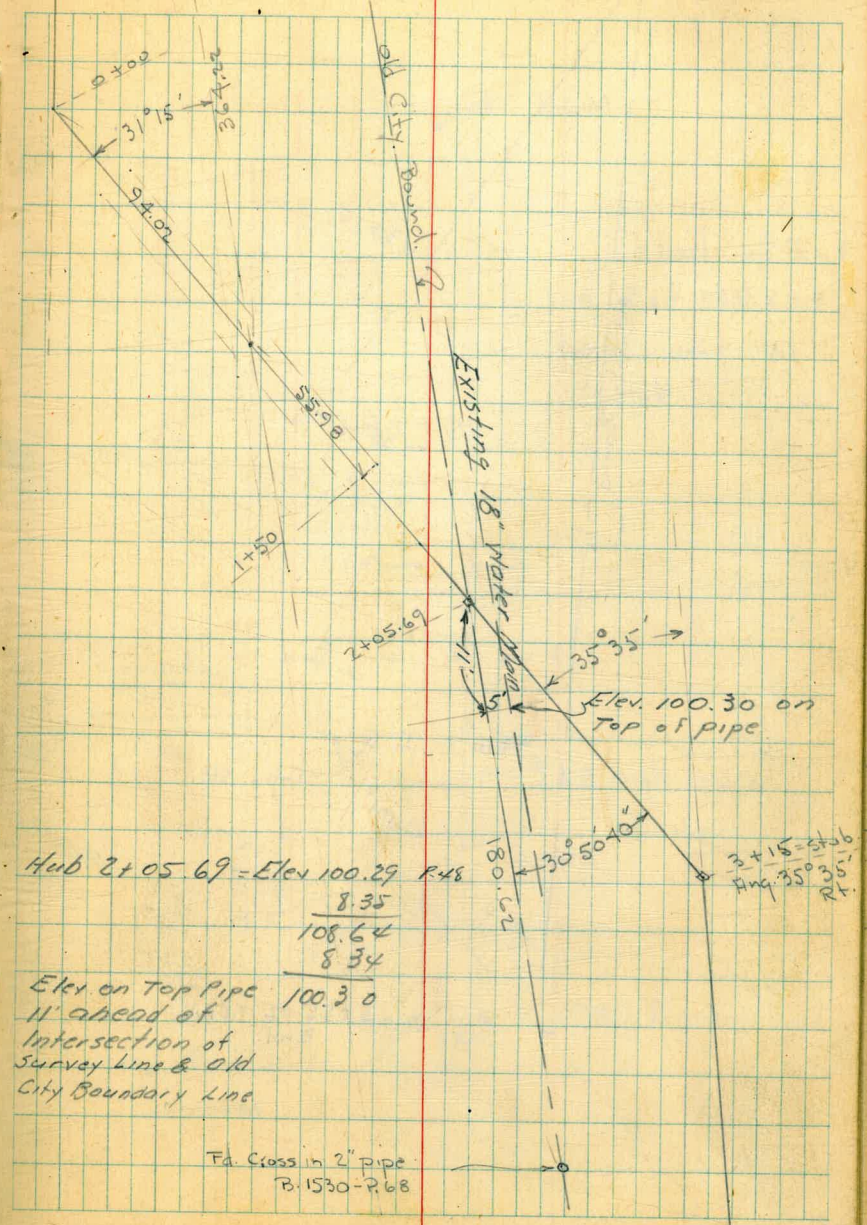 0+00
31°15'
364.22
94.02
old City Bound.
55.98
Existing 18" Water Main
1+50
2+05.69
11'
35°35'
5'
Elev. 100.30 on
Top of pipe
30°50'40"
180.62
3+15 = stub
Ang. 35°35'
Rt.
Hub 2+05.69 = Elev 100.29 P.48
8.35
108.64
8 34
Elev on Top Pipe 100.30
11' ahead of
Intersection of
Survey Line & Old
City Boundary Line
Fd. Cross in 2" pipe
B.1530-P.68